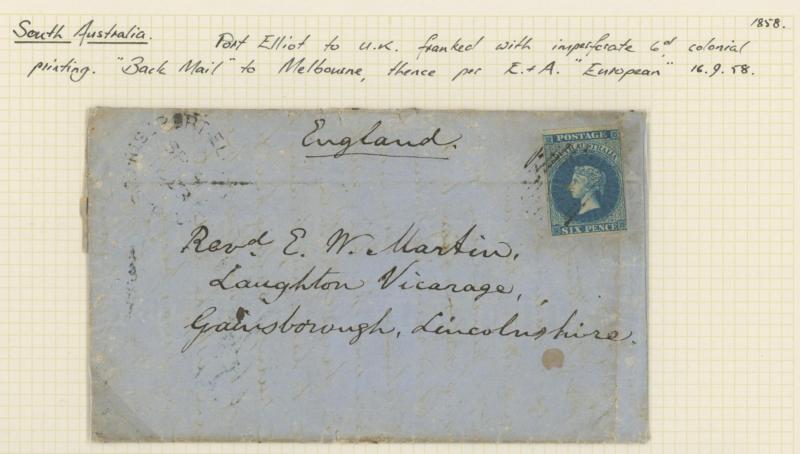 1858.
South Australia. Port Elliot to U.K. franked with imperforate 6d colonial
printing. "Back Mail" to Melbourne, thence per E.+A. "European" 16.9.58.
England.
POSTAGE
SOUTH AUSTRALIA
SIX PENCE
Revd. E. W. Martin,
Laughton Vicarage,
Gainsborough, Lincolnshire.